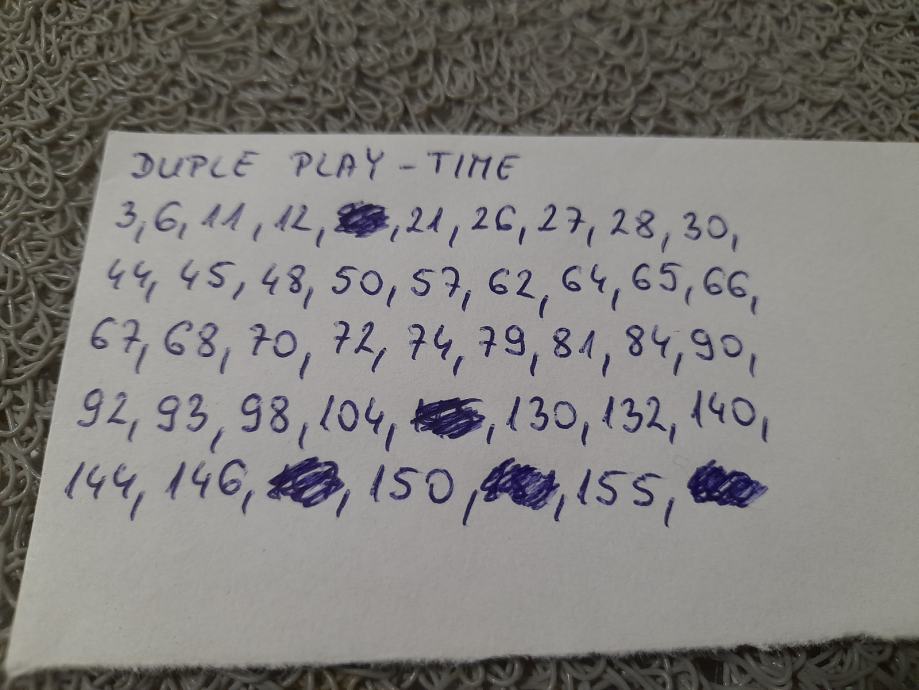 DUPLE PLAY-TIME
3, 6, 11, 12, , 21, 26, 27, 28, 30,
44, 45, 48, 50, 57, 62, 64, 65, 66,
67, 68, 70, 72, 74, 79, 81, 84, 90,
92, 93, 98, 104, , 130, 132, 140,
144, 146, , 150, , 155,